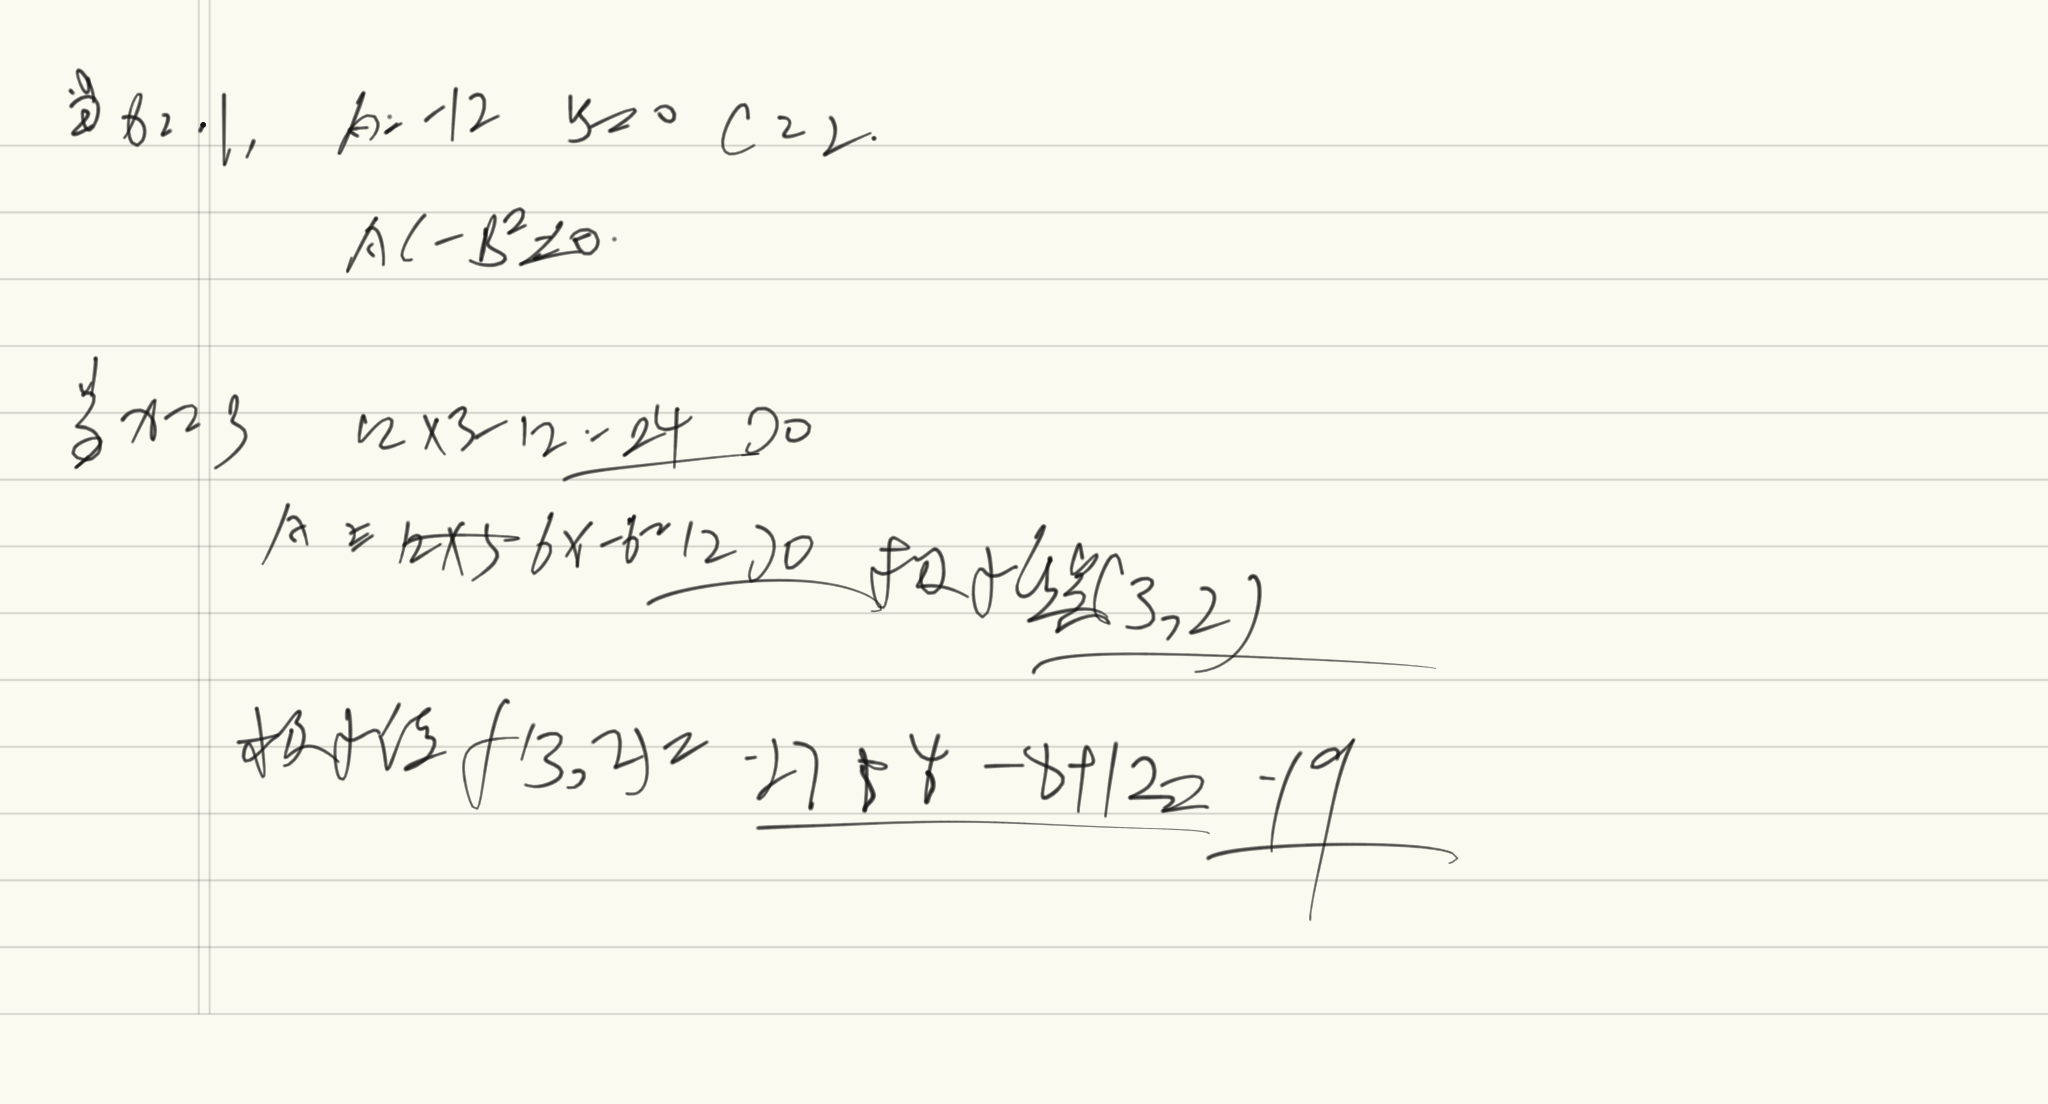 当x=-1, A=-12 B=0 C=2.
AC-B²<0.
当x=3 12×3-12=24>0
A= 6x-6=12>0 极小值点(3,2)
极小值f(3,2)= -27+4-8+12= -19